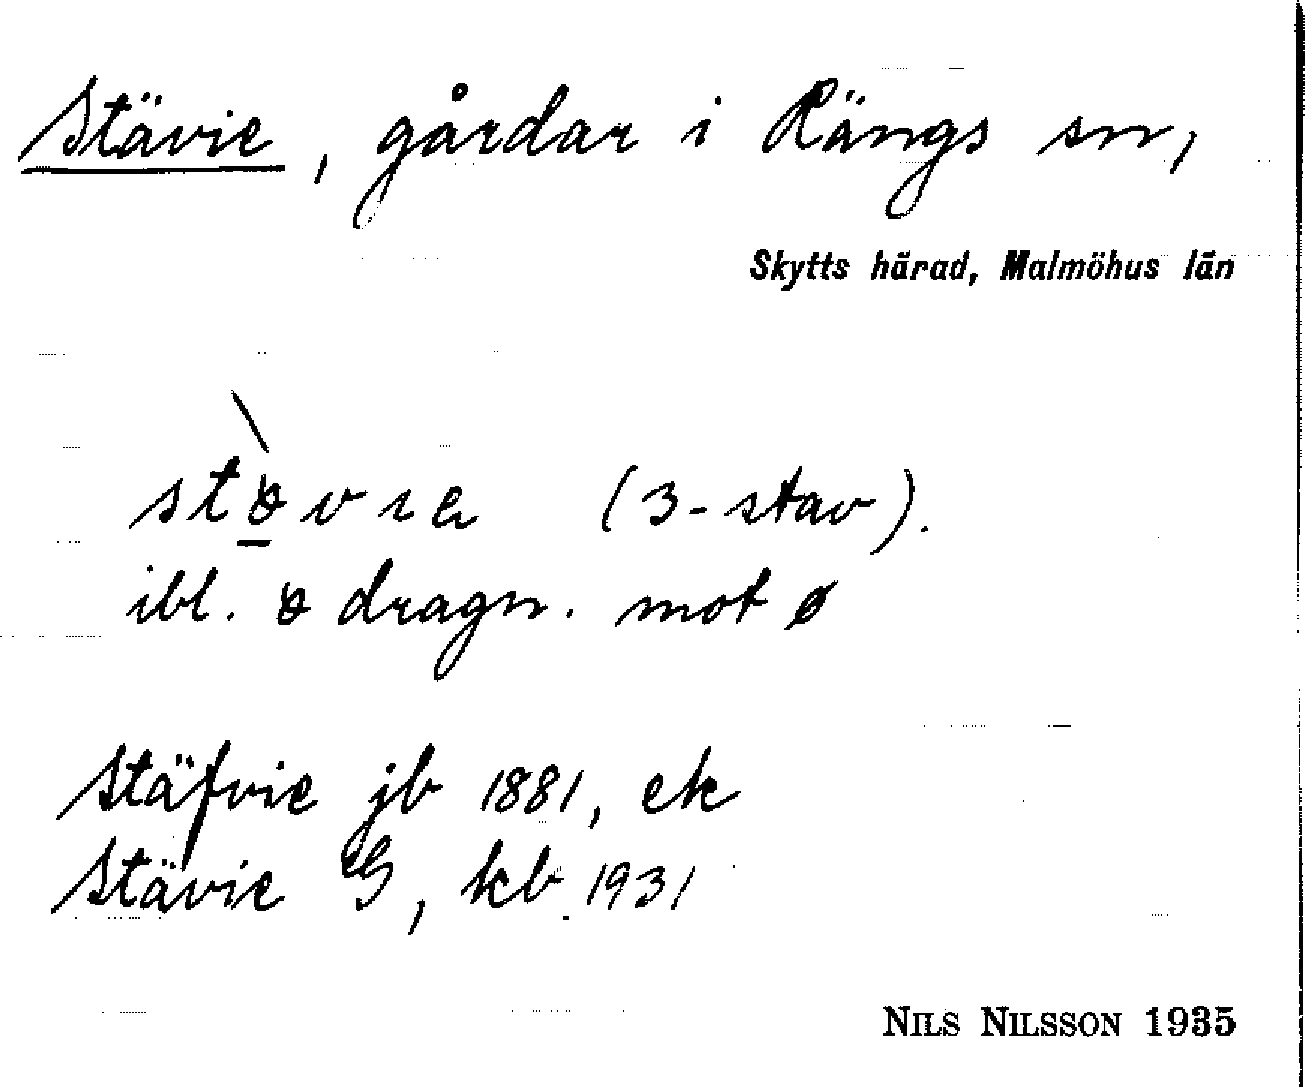 Stävie, gårdar i Rängs sn,
Skytts härad, Malmöhus län
(3-stav).
ibl. dragn. mot ø
Stäfvie jb 1881, ek
Stävie G, kb 1931
NILS NILSSON 1935